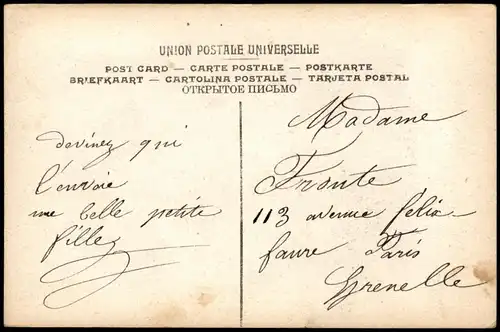 UNION POSTALE UNIVERSELLE
POST CARD — CARTE POSTALE — POSTKARTE
BRIEFKAART — CARTOLINA POSTALE — TARJETA POSTAL
ОТКРЫТОЕ ПИСЬМО
devinez qui
l'envoie
une belle petite
fille
Madame
Fronte
113 avenue félix-
faure Paris
Grenelle